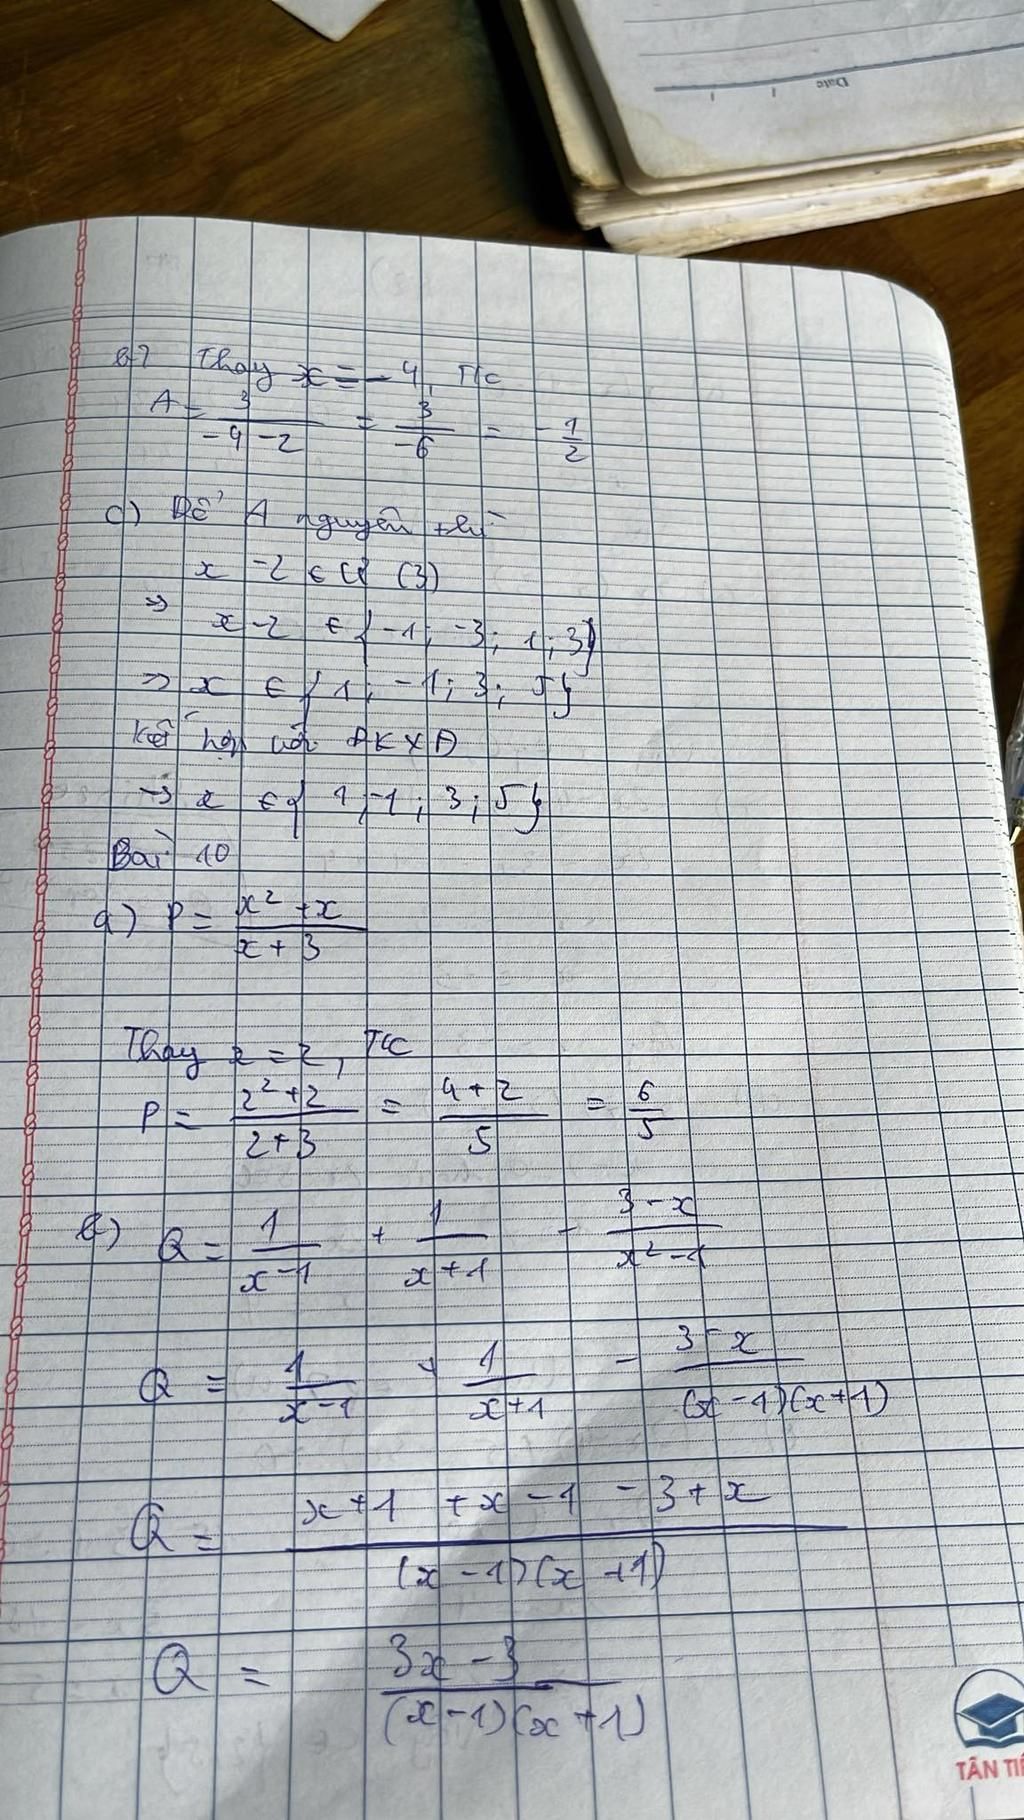 Date
b) Thay x = -4, TC
A = 3/(-4-2) = 3/(-6) = -1/2
c) Để A nguyên thì
x - 2 ∈ Ư (3)
=> x - 2 ∈ {-1; -3; 1; 3}
=> x ∈ {1; -1; 3; 5}
Kết hợp với ĐKXĐ
-> x ∈ {1; -1; 3; 5}
Bài 10
a) P = (x² + x)/(x + 3)
Thay x = 2, TC
P = (2² + 2)/(2 + 3) = (4 + 2)/5 = 6/5
b) Q = 1/(x - 1) + 1/(x + 1) - (3 - x)/(x² - 1)
Q = 1/(x - 1) + 1/(x + 1) - (3 - x)/((x - 1)(x + 1))
Q = (x + 1 + x - 1 - 3 + x)/((x - 1)(x + 1))
Q = (3x - 3)/((x - 1)(x + 1))
TÂN TI